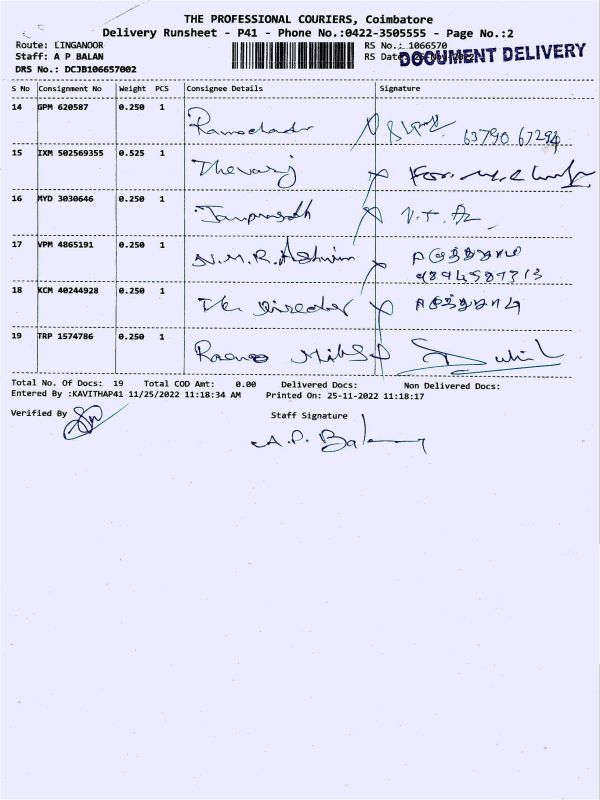 THE PROFESSIONAL COURIERS, Coimbatore
Delivery Runsheet - P41 - Phone No.:0422-3505555 - Page No.:2
Route: LINGANOOR
RS No.: 1066570
Staff: A P BALAN
RS Date
DOCUMENT DELIVERY
DRS No.: DCJB106657002
S No Consignment No Weight PCS Consignee Details Signature
14 GPM 620587 0.250 1 63790 67294
15 IXM 502569355 0.525 1 Thevaraj
16 MYD 3030646 0.250 1 V.T.
17 VPM 4865191 0.250 1 N.M.R. Ashwin
18 KCM 40244928 0.250 1 The Director
19 TRP 1574786 0.250 1
Total No. Of Docs: 19 Total COD Amt: 0.00 Delivered Docs: Non Delivered Docs:
Entered By :KAVITHAP41 11/25/2022 11:18:34 AM Printed On: 25-11-2022 11:18:17
Verified By
Staff Signature
A.P. Balan